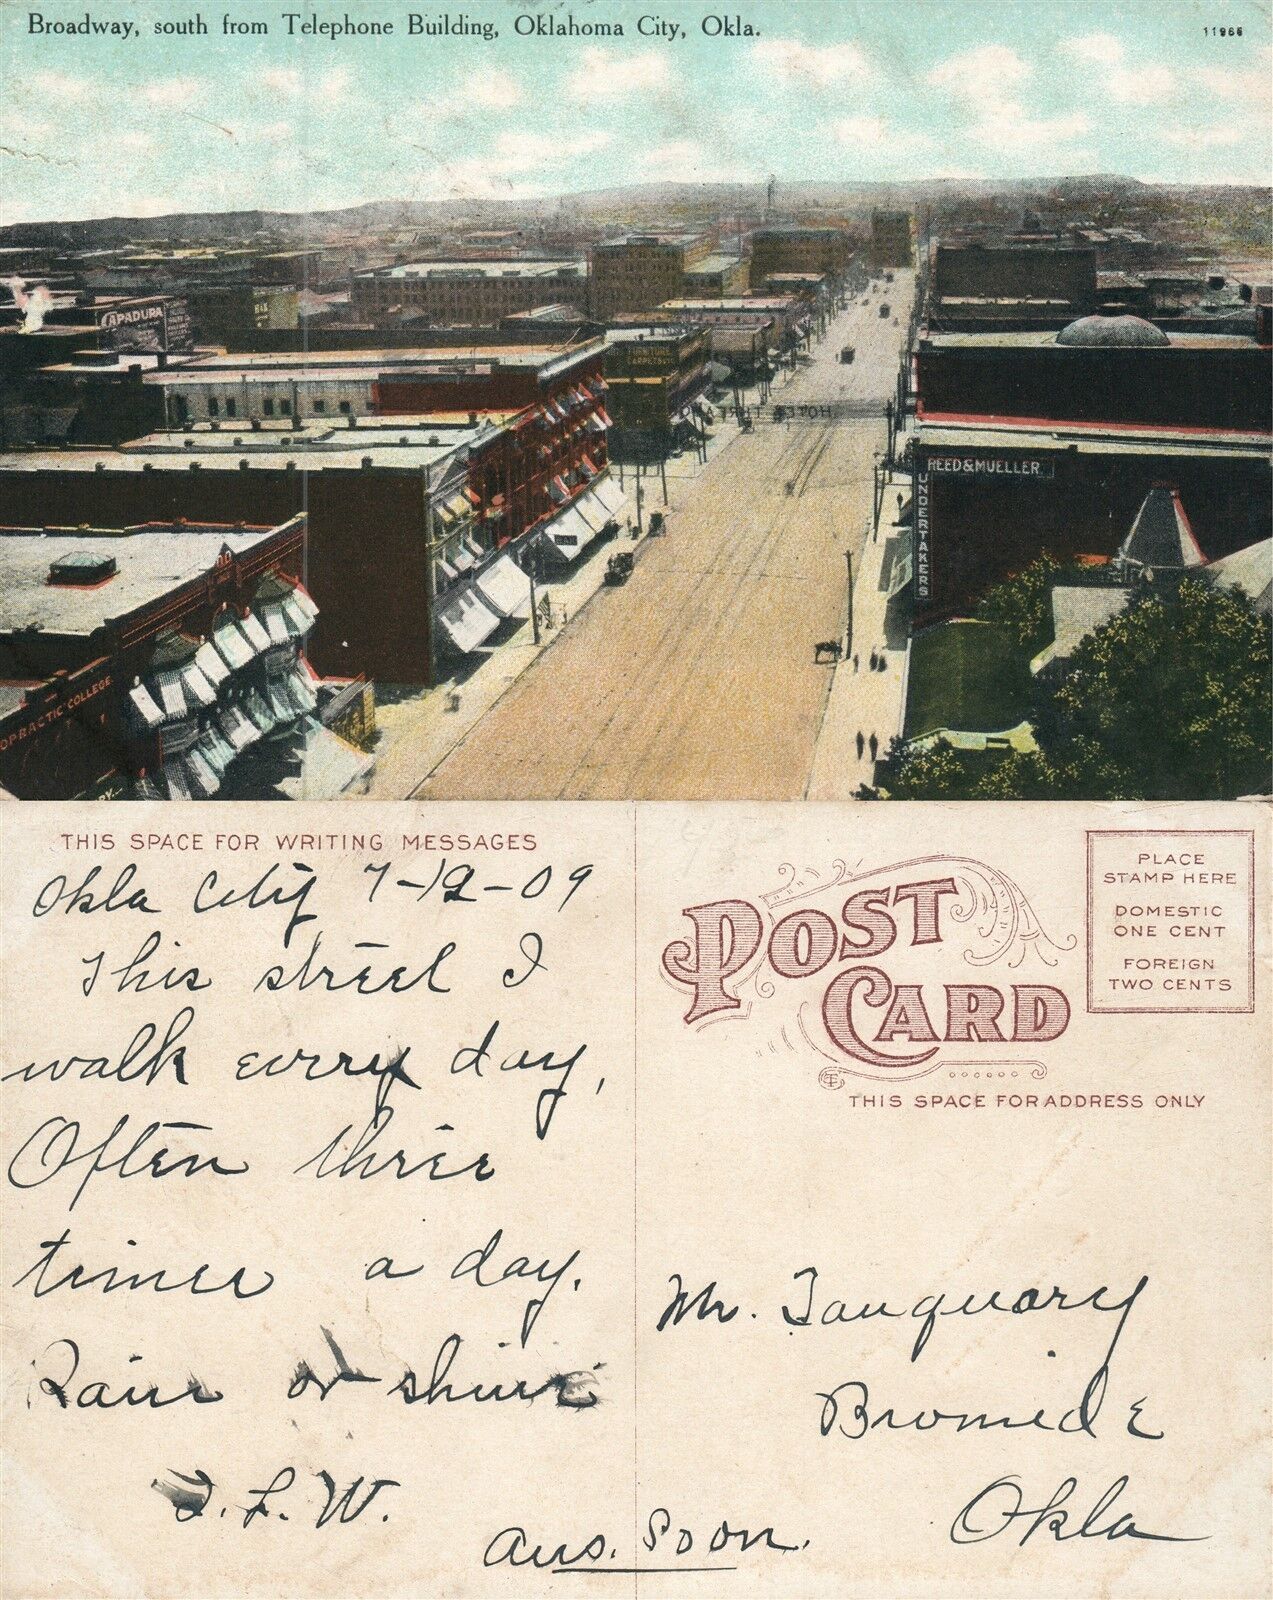 Broadway, south from Telephone Building, Oklahoma City, Okla.
11986
CAPADURA
FURNITURE
CARPETS
HOTEL THREAD
REED & MUELLER
UNDERTAKERS
OPRACTIC COLLEGE
THIS SPACE FOR WRITING MESSAGES
Okla City 7-12-09
This street I
walk every day,
Often three
times a day.
Rain or shine
L. W.
Ans. Soon.
POST
CARD
THIS SPACE FOR ADDRESS ONLY
PLACE
STAMP HERE
DOMESTIC
ONE CENT
FOREIGN
TWO CENTS
Mr. Tanquary
Bromide
Okla